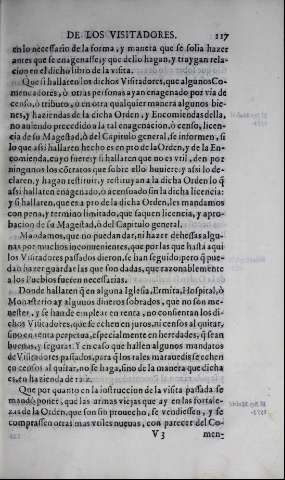 DE LOS VISITADORES. 117
en lo necessario de la forma, y manera que se solia hazer
antes que se enagenasse, y que dello hagan, y traygan rela-
cion en el dicho libro de la visita.
Que si hallaren los dichos Visitadores, que algunos Co-
mendadores, ò otras personas ayan enagenado por via de
censo, ò tributo, ò en otra qualquier manera algunos bie-
nes, y haziendas de la dicha Orden, y Encomiendas della,
no auiendo precedido a la tal enagenacion, ò censo, licen-
cia de su Magestad, ò del Capitulo general, se informen, si
lo que assi hallaren hecho es en pro de la Orden, y de la En-
comienda, cuyo fuere: y si hallaren que no es vtil, den por
ningunos los cõtratos que sobre ello huuiere: y assi lo de-
claren, y hagan restituir, y restituyan a la dicha Orden lo q̃
assi hallaren enagenado, ò acensuado sin la dicha licencia:
y si hallaren, que es a pro de la dicha Orden, les mandamos
con pena, y termino limitado, que saquen licencia, y apro-
bacion de su Magestad, ò del Capitulo general.
Mandamos, que no puedan dar, ni hazer dehessas algu-
nas por muchos inconuenientes, que por las que hasta aqui
los Visitadores passados dieron, se han seguido: pero q̃ pue-
dan hazer guardar las que son dadas, que razonablemente
a los Pueblos fuesen necessarias.
Donde hallaren q̃ en alguna Iglesia, Ermita, Hospital, ò
Monasterio ay algunos dineros sobrados, que no son me-
nester, y se han de emplear en renta, no consientan los di-
chos Visitadores, que se echen en juros, ni censos al quitar,
sino en renta perpetua, especialmente en heredades, q̃ sean
buenas, y seguras: Y en caso que hallen algunos mandatos
de Visitadores passados, para q̃ los tales marauedis se echen
en censos al quitar, no se haga, sino de la manera que dicha
es, en hazienda de raiz.
Que por quanto en la instruccion de la visita passada se
mandò poner, que las armas viejas que ay en las fortale-
zas de la Orden, que son sin prouecho, se vendiessen, y se
comprassen otras mas vtiles nueuas, con parecer del Co-
V 3 men-